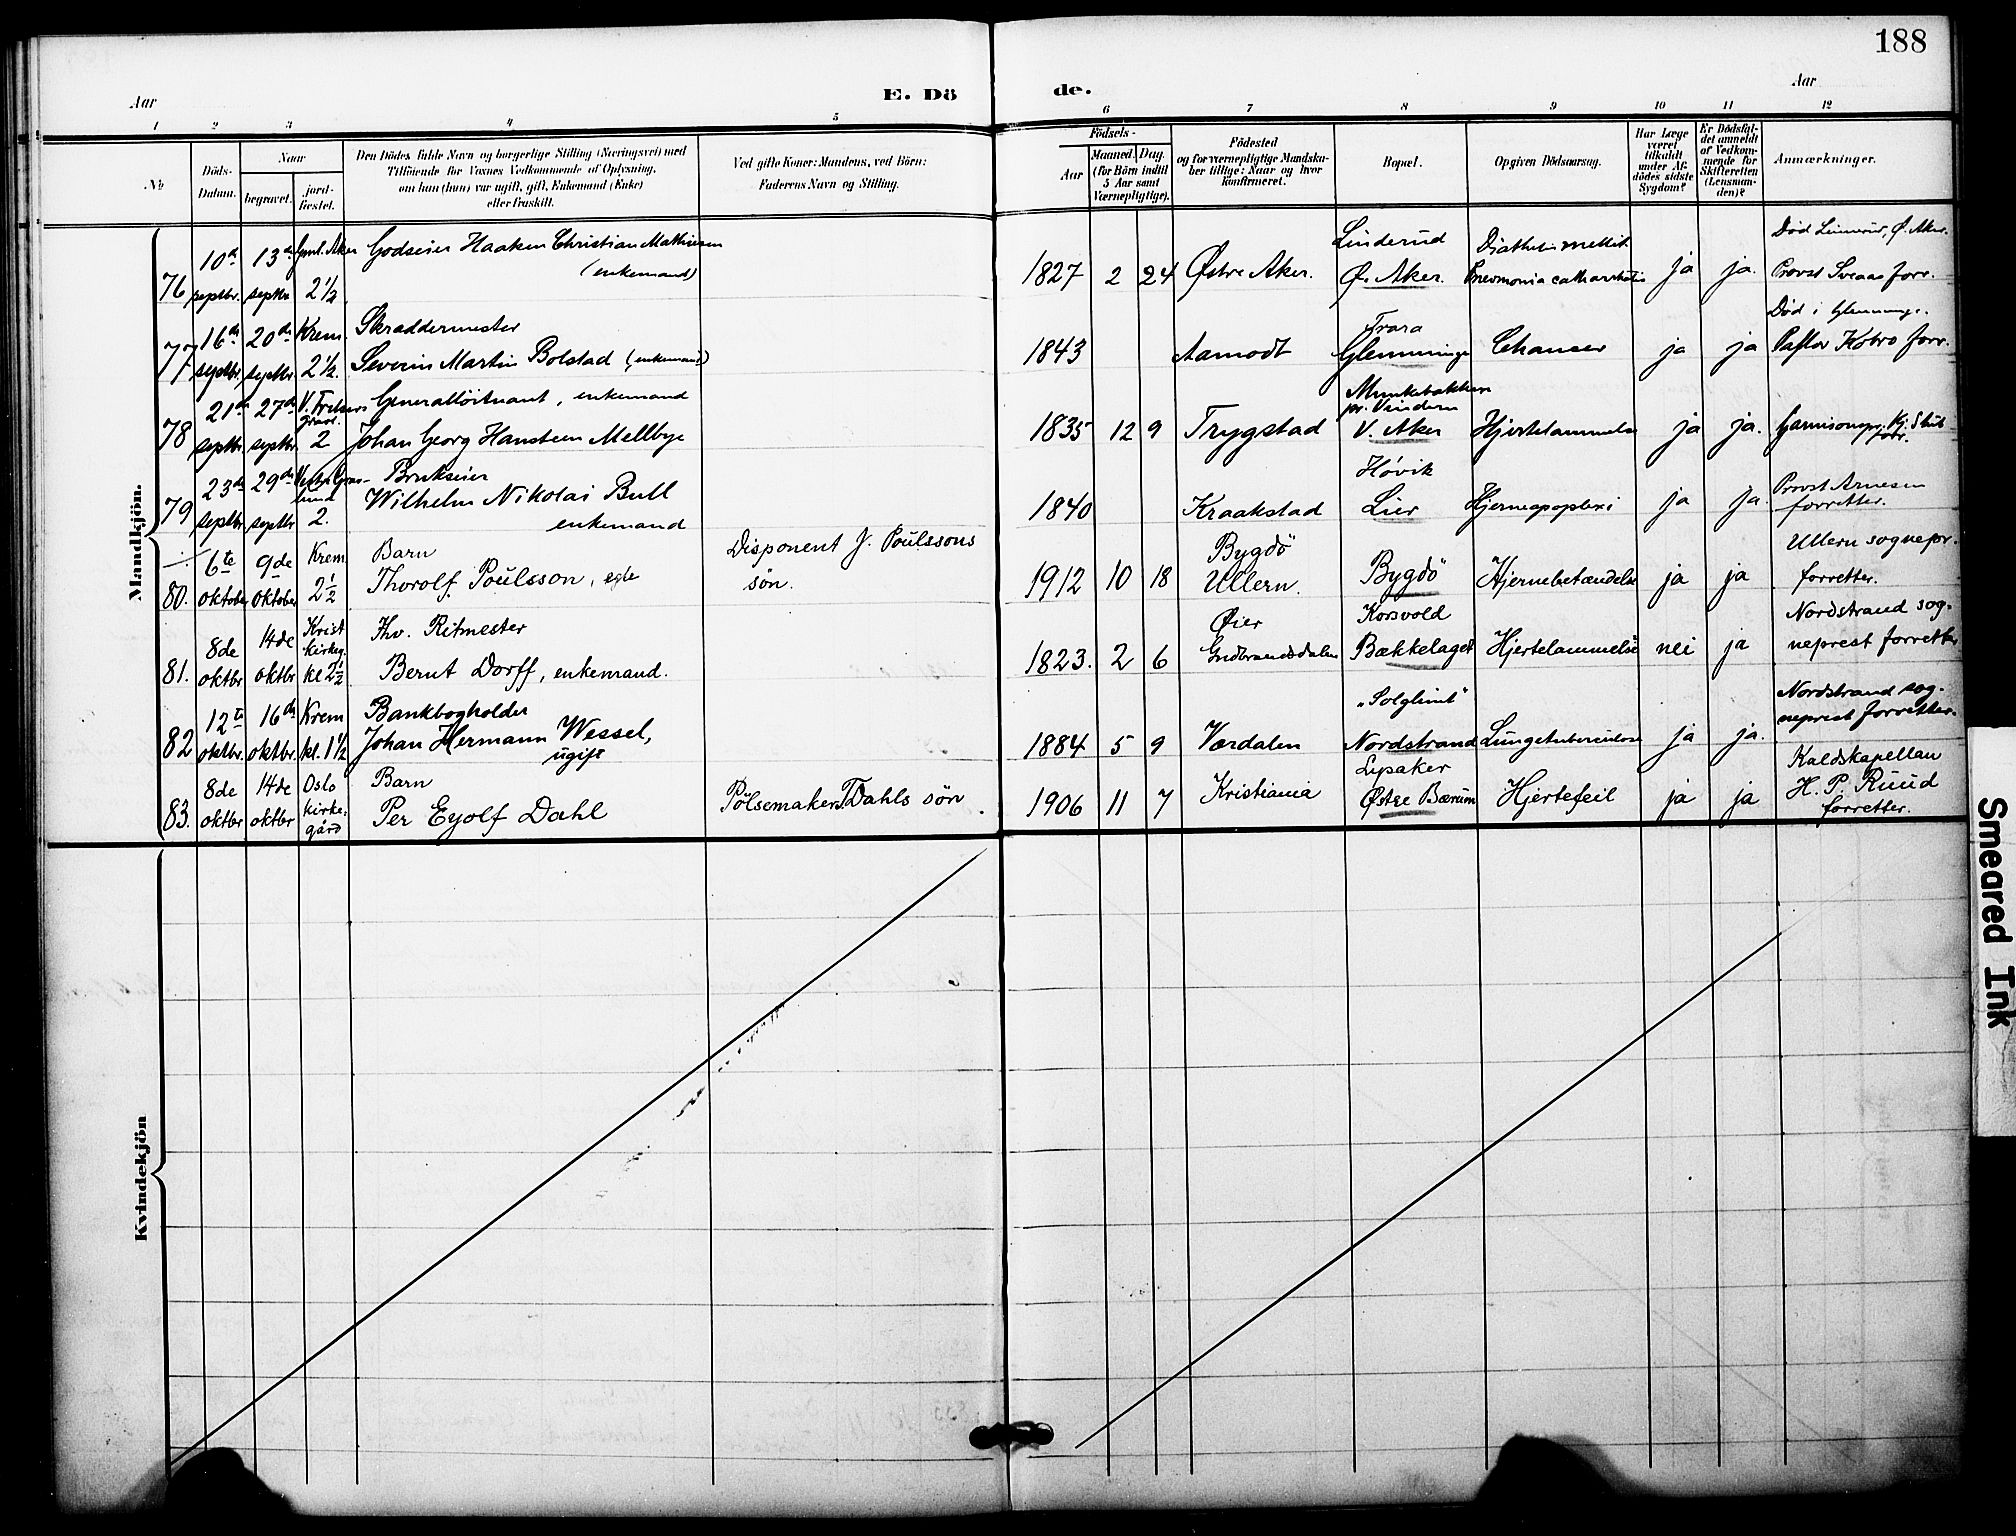 188
Aar
E. Dö
de.
Aar
1 2 3 4 5 6 7 8 9 10 11 12
No
Döds-
Datum.
Naar
begravet.
jord-
fæstet.
Den Dödes fulde Navn og borgerlige Stilling (Næringsvei) med
Tilföiende for Voxnes Vedkommende af Oplysning,
om han (hun) var ugift, gift, Enkemand (Enke)
eller fraskilt.
Ved gifte Koner: Mandens, ved Börn:
Faderens Navn og Stilling.
Födsels-
Aar
Maaned. Dag.
(for Börn indtil
5 Aar samt
Værnepligtige).
Födested
og for værnepligtige Mandska-
ber tillige: Naar og hvor
konfirmeret.
Bopæl.
Opgiven Dödsaarsag.
Har Læge
været
tilkaldt
under Af-
dödes sidste
Sygdom?
Er Dödsfal-
det anmeldt
af Vedkom-
mende for
Skifteretten
(Lensman-
den)?
Anmærkninger.
Mandkjön.
76
10de septbr.
13de septbr
Gml. Aker
2 1/2
Godseier Haaken Christian Mathiesen
(enkemand)
1827 2 24
Østre Aker.
Linderud
Ø. Aker.
mellit.
Pneumonia
ja ja.
Død Linnerud, Ø. Aker.
Provst Sveaas forr.
77
16de septbr.
20de septbr.
Krem.
2 1/2.
Skræddermester
Severin Martin Bolstad (enkemand)
1843
Aamodt
Trara
Glemminge
Chancer
ja ja
Død i Glemminge.
Pastor Kobro forr.
78
21de septbr.
27de septbr
V. Frelsers
Gravl.
2
Generalløitnant, enkemand
Johan Georg Hansteen Mellbye
1835 12 9
Trygstad
Munkebakken
pr. Vindern
V. Aker
Hjertelammelse
ja ja.
Garnisonspr. Kj.
forr.
79
23de septbr
29de septbr
Vestre Grav-
lund
2.
Brukseier
Wilhelm Nikolai Bull
enkemand
1840
Kraakstad
Høvik
Lier
Hjerneapoplexi
ja ja.
Provst Arnesen
forretter.
80.
6te oktober
9de oktober
Krem
2 1/2
Barn
Thorolf Poulsson, egte
Disponent J. Poulssons
søn.
1912 10 18
Bygdö
Ullern.
Bygdö
Hjernebetændelse
ja ja
Ullern sognepr.
forretter.
81.
8de oktbr
14de oktbr
Krist
kirkeg.
kl 2 1/2
Fhv. Ritmester
Bernt Dorff, enkemand.
1823. 2 6
Øier
Gudbrandsdalen
Korsvold
Bækkelaget
Hjertelammelse
nei ja
Nordstrand sog-
neprest forretter
82
12te oktbr.
16de oktbr.
Krem
kl. 1 1/2
Bankbogholder
Johan Hermann Wessel,
ugift
1884 5 9
Værdalen
"Solglimt"
Nordstrand
Lungetuberculose
ja ja.
Nordstrand sog-
neprest forretter.
83.
8de oktbr
14de oktbr
Oslo
kirke-
gård
Barn
Per Eyolf Dahl
Pølsemaker T. Dahls søn.
1906 11 7
Kristiania
Lysaker
Østre Bærum
Hjertefeil
ja ja
Kaldskapellan
H. P. Ruud
forretter.
Kvindekjön
Smeared Ink